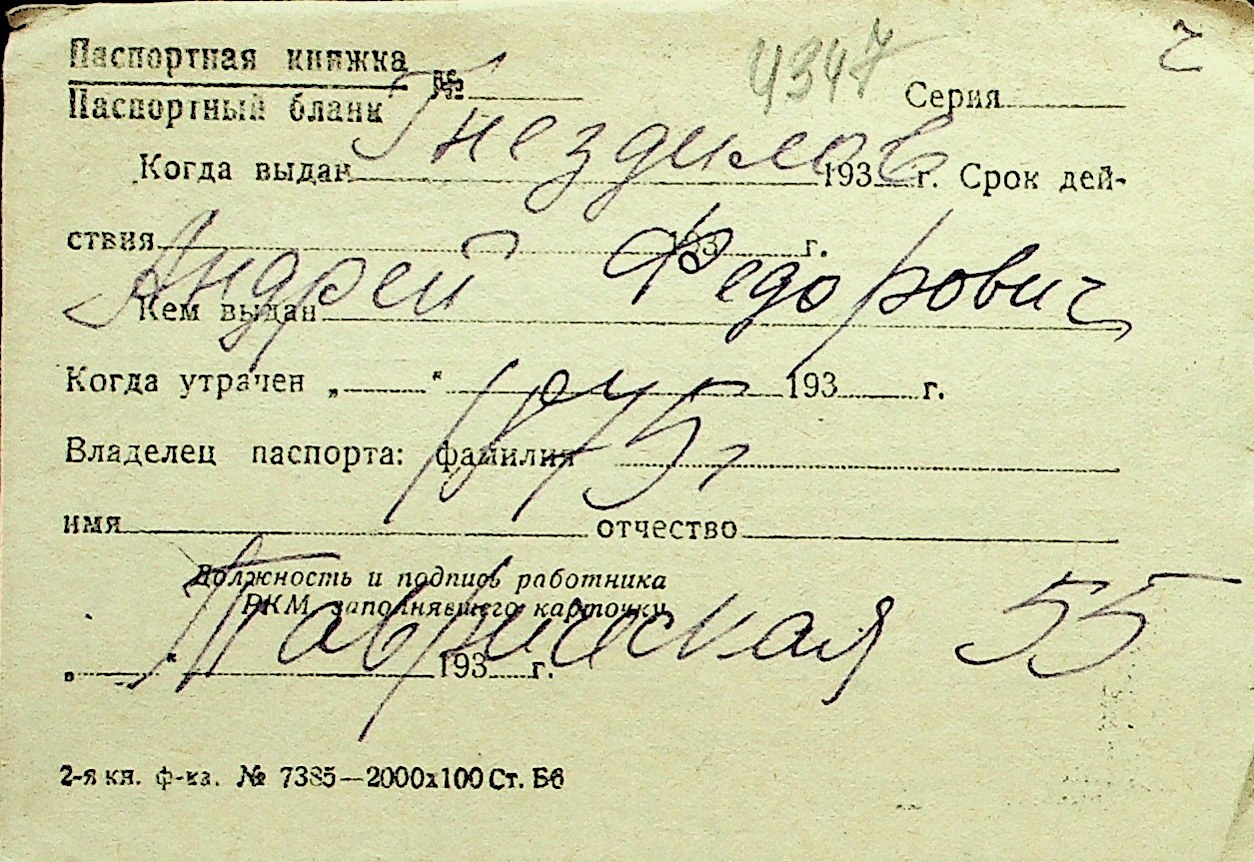 4347 г
Паспортная книжка
Паспортный бланк № Серия
Гнездилов
Когда выдан 193 г. Срок дей-
ствия 193 г.
Андрей Федорович
Кем выдан
Когда утрачен „ “ 193 г.
1875 г
Владелец паспорта: фамилия
имя отчество
Должность и подпись работника
РКМ, заполнявшего карточку
Таврическая 55
„ “ 193 г.
2-я кн. ф-ка. № 7385—2000х100 Ст. Бб